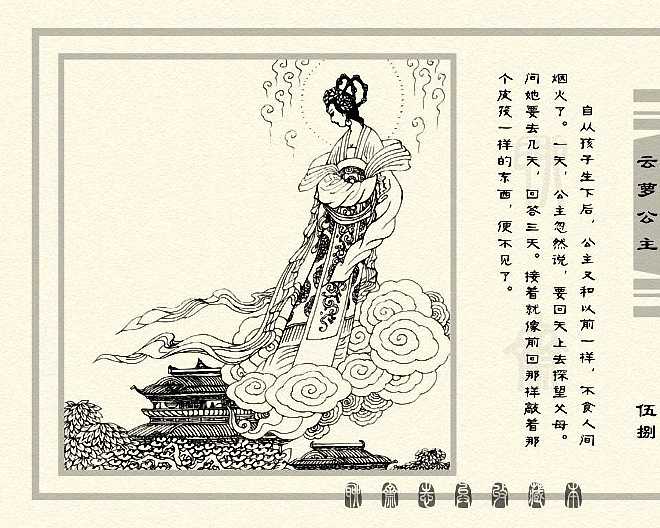 自从孩子生下后，公主又和以前一样，不食人间
烟火了。一天，公主忽然说，要回天上去探望父母。
问她要去几天，回答三天。接着就像前回那样敲着那
个皮孩一样的东西，便不见了。
云萝公主
伍捌
聊斋志异收藏本